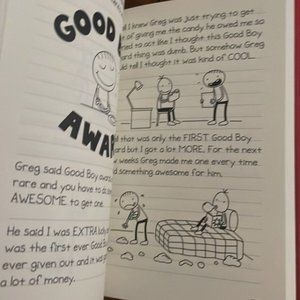 GOOD
AWA
Greg said Good Boy
rare and you have to do
AWESOME to get one.
He said I was EXTRA
was the first ever Good
ever given out and it
a lot of money.
I knew Greg was just trying to get
of giving me the candy he owed me so
tried to act like I thought this Good Boy
thing was dumb. But somehow Greg
tell I thought it was kind of COOL.
that was only the FIRST Good Boy
but I got a lot MORE. For the next
weeks Greg made me one every time
something awesome for him.